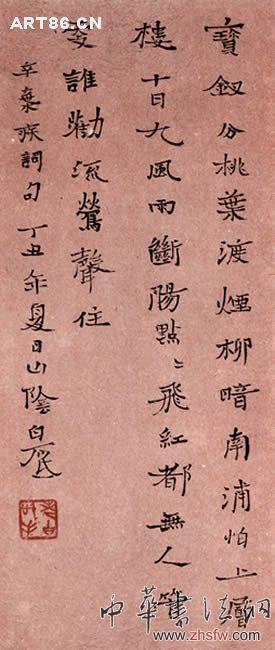 ART86.CN
寶釵分桃葉渡煙柳暗南浦怕上層
樓十日九風雨斷陽點〻飛紅都無人管
更誰勸流鶯聲住
辛棄疾詞句 丁丑年夏日山陰白砥
中華書法网
www.zhsfw.com